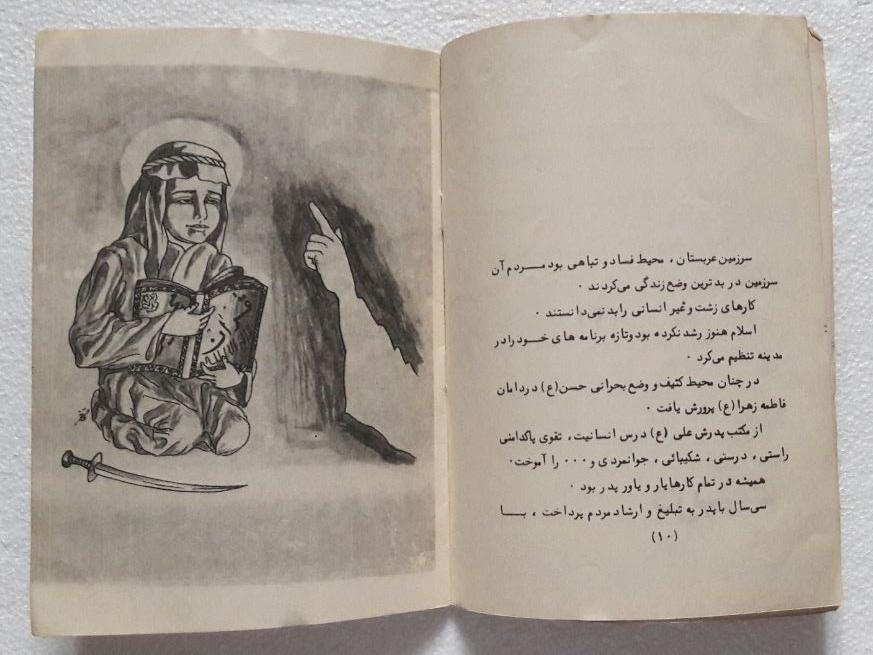 سرزمین عربستان، محیط فساد و تباهی بود مردم آن
سرزمین در بدترین وضع زندگی می‌کردند .
کارهای زشت و غیر انسانی را بد نمی‌دانستند .
اسلام هنوز رشد نکرده بود و تازه برنامه های خود را در
مدینه تنظیم می‌کرد .
در چنان محیط کثیف و وضع بحرانی حسن (ع) در دامان
فاطمه زهرا (ع) پرورش یافت .
از مکتب پدرش علی (ع) درس انسانیت، تقوی پاکدامنی
راستی، درستی، شکیبائی، جوانمردی و ... را آموخت.
همیشه در تمام کارها یار و یاور پدر بود .
سی‌سال با پدر به تبلیغ و ارشاد مردم پرداخت، با
(۱۰)